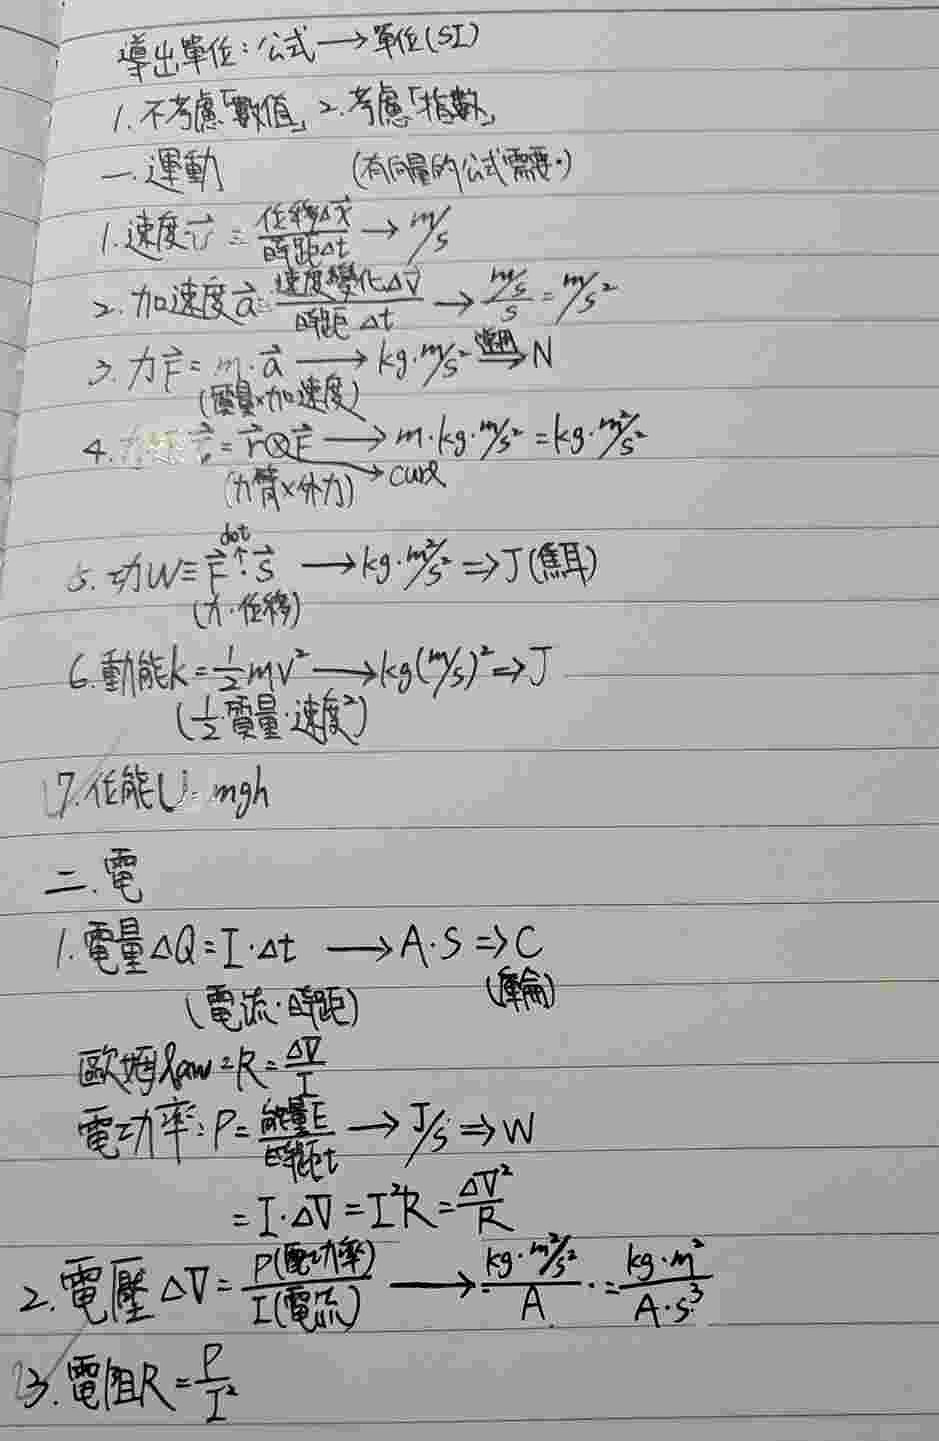 導出單位:公式→單位(SI)
1.不考慮「數值」2.考慮「指數」
一.運動 (有向量的公式需要·)
1.速度v⃗ = 位移Δx⃗/時距Δt → m/s
2.加速度a⃗ = 速度變化ΔV⃗/時距Δt → m/s/s = m/s²
3.力F⃗ = m·a⃗ → kg·m/s² → N
(質量×加速度)
4. = r⃗⊗F⃗ → m·kg·m/s² = kg·m²/s²
(力臂×外力) → curl
dot
5.功W = F⃗·s⃗ → kg·m²/s² ⇒ J(焦耳)
(力·位移)
6.動能k = 1/2mv² → kg(m/s)² ⇒ J
(1/2·質量·速度²)
7.位能U = mgh
二.電
1.電量ΔQ = I·Δt → A·s ⇒ C
(電流·時距) (庫侖)
歐姆law = R = ΔV/I
電功率:P = 能量E/時距t → J/s ⇒ W
= I·ΔV = I²R = ΔV²/R
2.電壓ΔV = P(電功率)/I(電流) → kg·m²/s²/A = kg·m²/A·s³
3.電阻R = P/I²